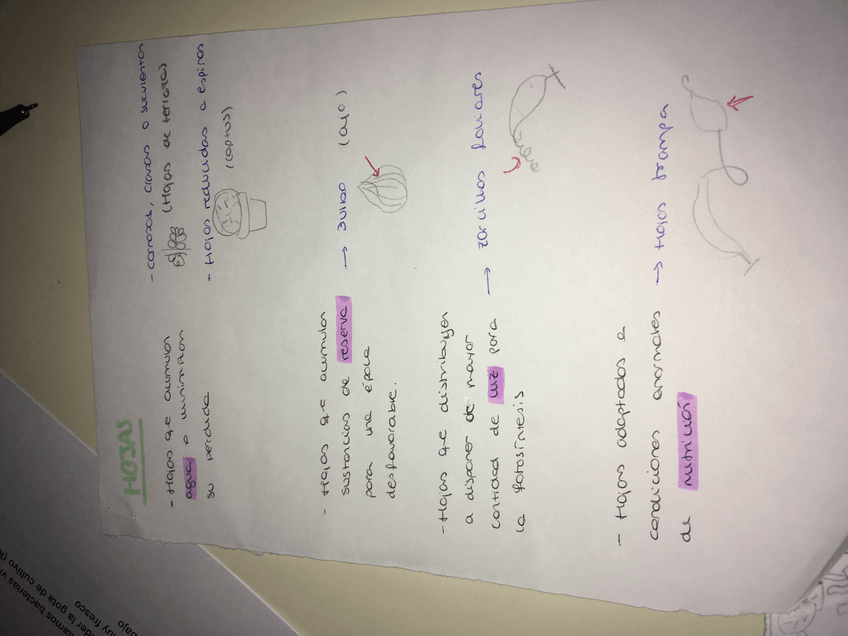 HOJAS
- Hojas que acumulan
agua o minimizan
su pérdida
- carnosas, crasas o suculentas
(Hojas de
- Hojas reducidas a espinas
(captus)
- Hojas que acumulan
sustancias de reserva
para una época
desfavorable.
→ Bulbo (ajo)
- Hojas que distribuyen
a disponer de mayor
cantidad de luz para
la fotosíntesis
→ zarcillos foliares
- Hojas adaptadas a
condiciones anormales
de nutrición
→ Hojas trampa
tamos bacterias v
der la gota de cultivo (l
uy fresco
bajo